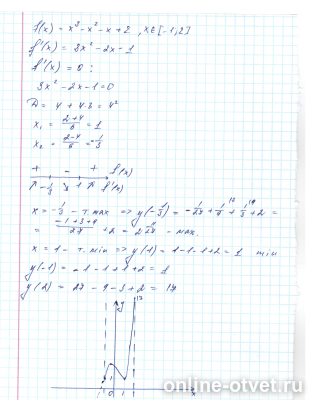 f(x) = x³ - x² - x + 2 , x∈[-1,2]
f'(x) = 3x² - 2x - 1
f'(x) = 0 :
3x² - 2x - 1 = 0
D = 4 + 4·3 = 4²
x₁ = (2+4)/6 = 1
x₂ = (2-4)/6 = -1/3
+ - + f(x)
-1/3 1 f'(x)
x = -1/3 - т. max => y(-1/3) = -1/27 + 1/9 + 1/3 + 2 =
+ 2 = 2 - max.
x = 1 - т. min => y(1) = 1-1-1+2 = 1 min
y(-1) = -1-1+1+2 = 1
y(2) = 27 - 9 - 3 + 2 = 17
y 17
0 1 x
online-otvet.ru